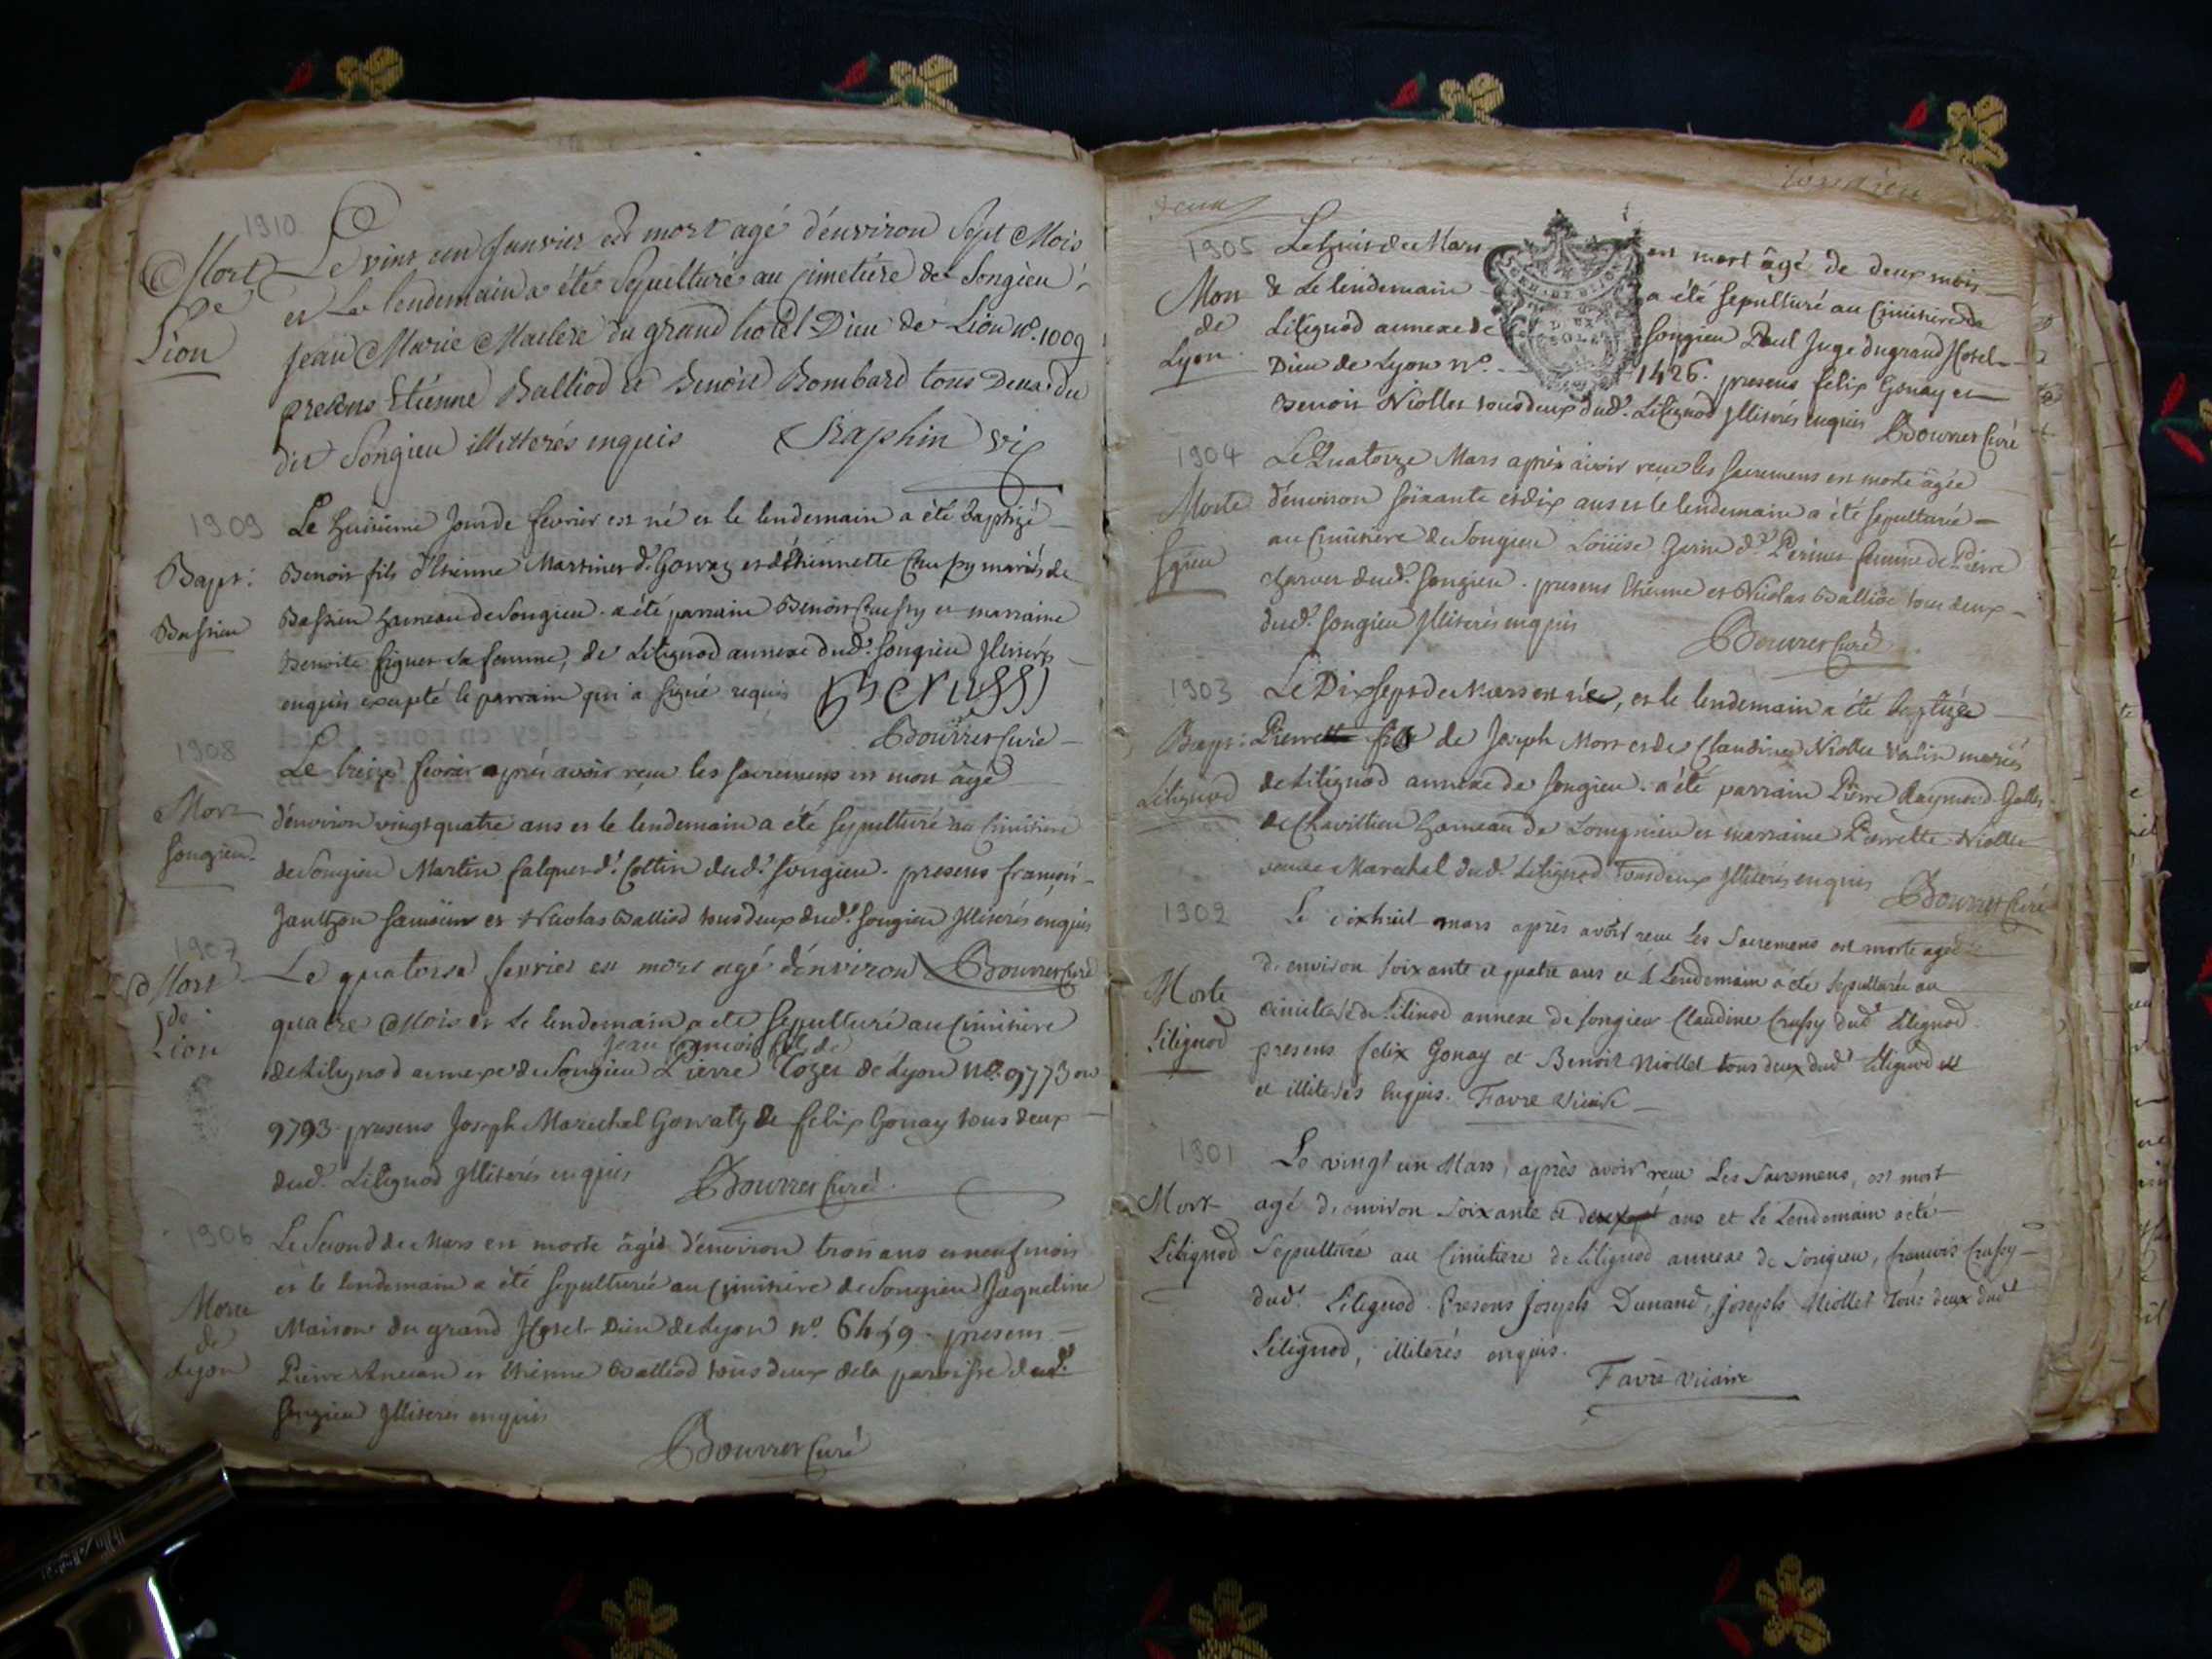 1910
Mort
de
Lion
Le vint un Janvier est mort agé d'environ sept Mois
et Le lendemain a été sepulturé au cimetiére de Songieu
Jean Marie du grand hotel Dieu de Lion n°. 1009
presens Etiénne Balliod et Benoit Bombard tous Deux du
dit Songieu illitterés enquis
1909
Bapt:
Bassieu
Le huitieme Jour de fevrier est né et le lendemain a été baptizé
Benoit fils d'Etienne Martinet d.t et d'Etiennette Crussy mariés de
Bassieu hameau de Songieu. a été parrain Benoit Crussy et marraine
Benoite sa femme, de Litignod annexe dud.t Songieu Jlliterés
enquis excepté le parrain qui a signé requis B crussy
Bourret Curé
1908
Mort
Songieu
Le treize fevrier après avoir reçu les sacremens est mort âgé
d'environ vingt quatre ans et le lendemain a été sepulturé au Cimitiere
de Songieu Martin falquet d.t Cottin dud.t Songieu. presens françois
et Nicolas Balliod tous deux dud.t Songieu Jlliterés enquis
Bourret Curé
1907
Mort
de
Lion
Le quatorse fevrier est mort agé d'environ
quatre Mois et le lendemain a eté sepulturé au Cimitiere
Jean fils de
de Litignod annexe de Songieu Pierre de Lyon N°. 9773 ou
9793. presens Joseph Marechal et felix Gonay tous deux
dud.t Litignod Jlliterés enquis Bourret Curé
1906
Morte
de
Lyon
Le Second de Mars est morte âgée d'environ trois ans et neuf mois
et le lendemain a été sepulturée au Cimitiere de Songieu Jaqueline
Maison du grand Hotel-Dieu de Lyon n°. presens
Pierre et Etienne Balliod tous deux de la paroisse dud.t
Songieu Jlliterés enquis
Bourret Curé
1905
Mort
de
Lyon
Le huit de Mars est mort âgé de deux mois
& Le lendemain a été sepulturé au Cimitiere de
Litignod annexe de Songieu Paul Juge du grand Hotel-
Dieu de Lyon n°. 1426. presens felix Gonay et
Benoit Niollet tous deux dud.t Litignod Jlliterés enquis Bourret Curé
1904
Morte
Songieu
Le Quatorze Mars après avoir reçu les sacremens est morte âgée
d'environ soixante et dix ans et le lendemain a été sepulturée
au Cimitiere de Songieu Loüise d.t femme de Pierre
Charvet dud.t Songieu. presens Etienne et Nicolas Balliod tous deux
dud.t Songieu Jlliterés enquis Bourret Curé
1903
Bapt:
Litignod
Le Dix sept de Mars est née, et le lendemain a été baptizée
Pierrette de Joseph Mort et de Claudine Niollet mariés
de Litignod annexe de Songieu. a été parrain Pierre Raymond
de Chavillieu hameau de et marraine Pierrette Niollet
Marechal dud.t Litignod tous deux Jlliterés enquis
Bourret Curé
1902
Morte
Litignod
Le dixhuit mars après avoir recu les Sacremens est morte agée
d'environ soixante et quatre ans et le Lendemain a été sepulturée au
Cimitiere de Litinod annexe de Songieu Claudine Crussy dud.t Litignod.
presens felix Gonay et Benoit Niollet tous deux dud.t Litignod
et illiterés enquis. Favre vicaire
1901
Mort
Litignod
Le vingt un Mars, après avoir recu Les Sacremens, est mort
agé d'environ soixante et ans et le Lendemain a été
Sepulturé au Cimitiere de Litignod annexe de Songieu, francois Crussy
dud.t Litignod. Presens Joseph Dunand, Joseph Niollet tous deux dud.t
Litignod, illiterés enquis.
Favre vicaire